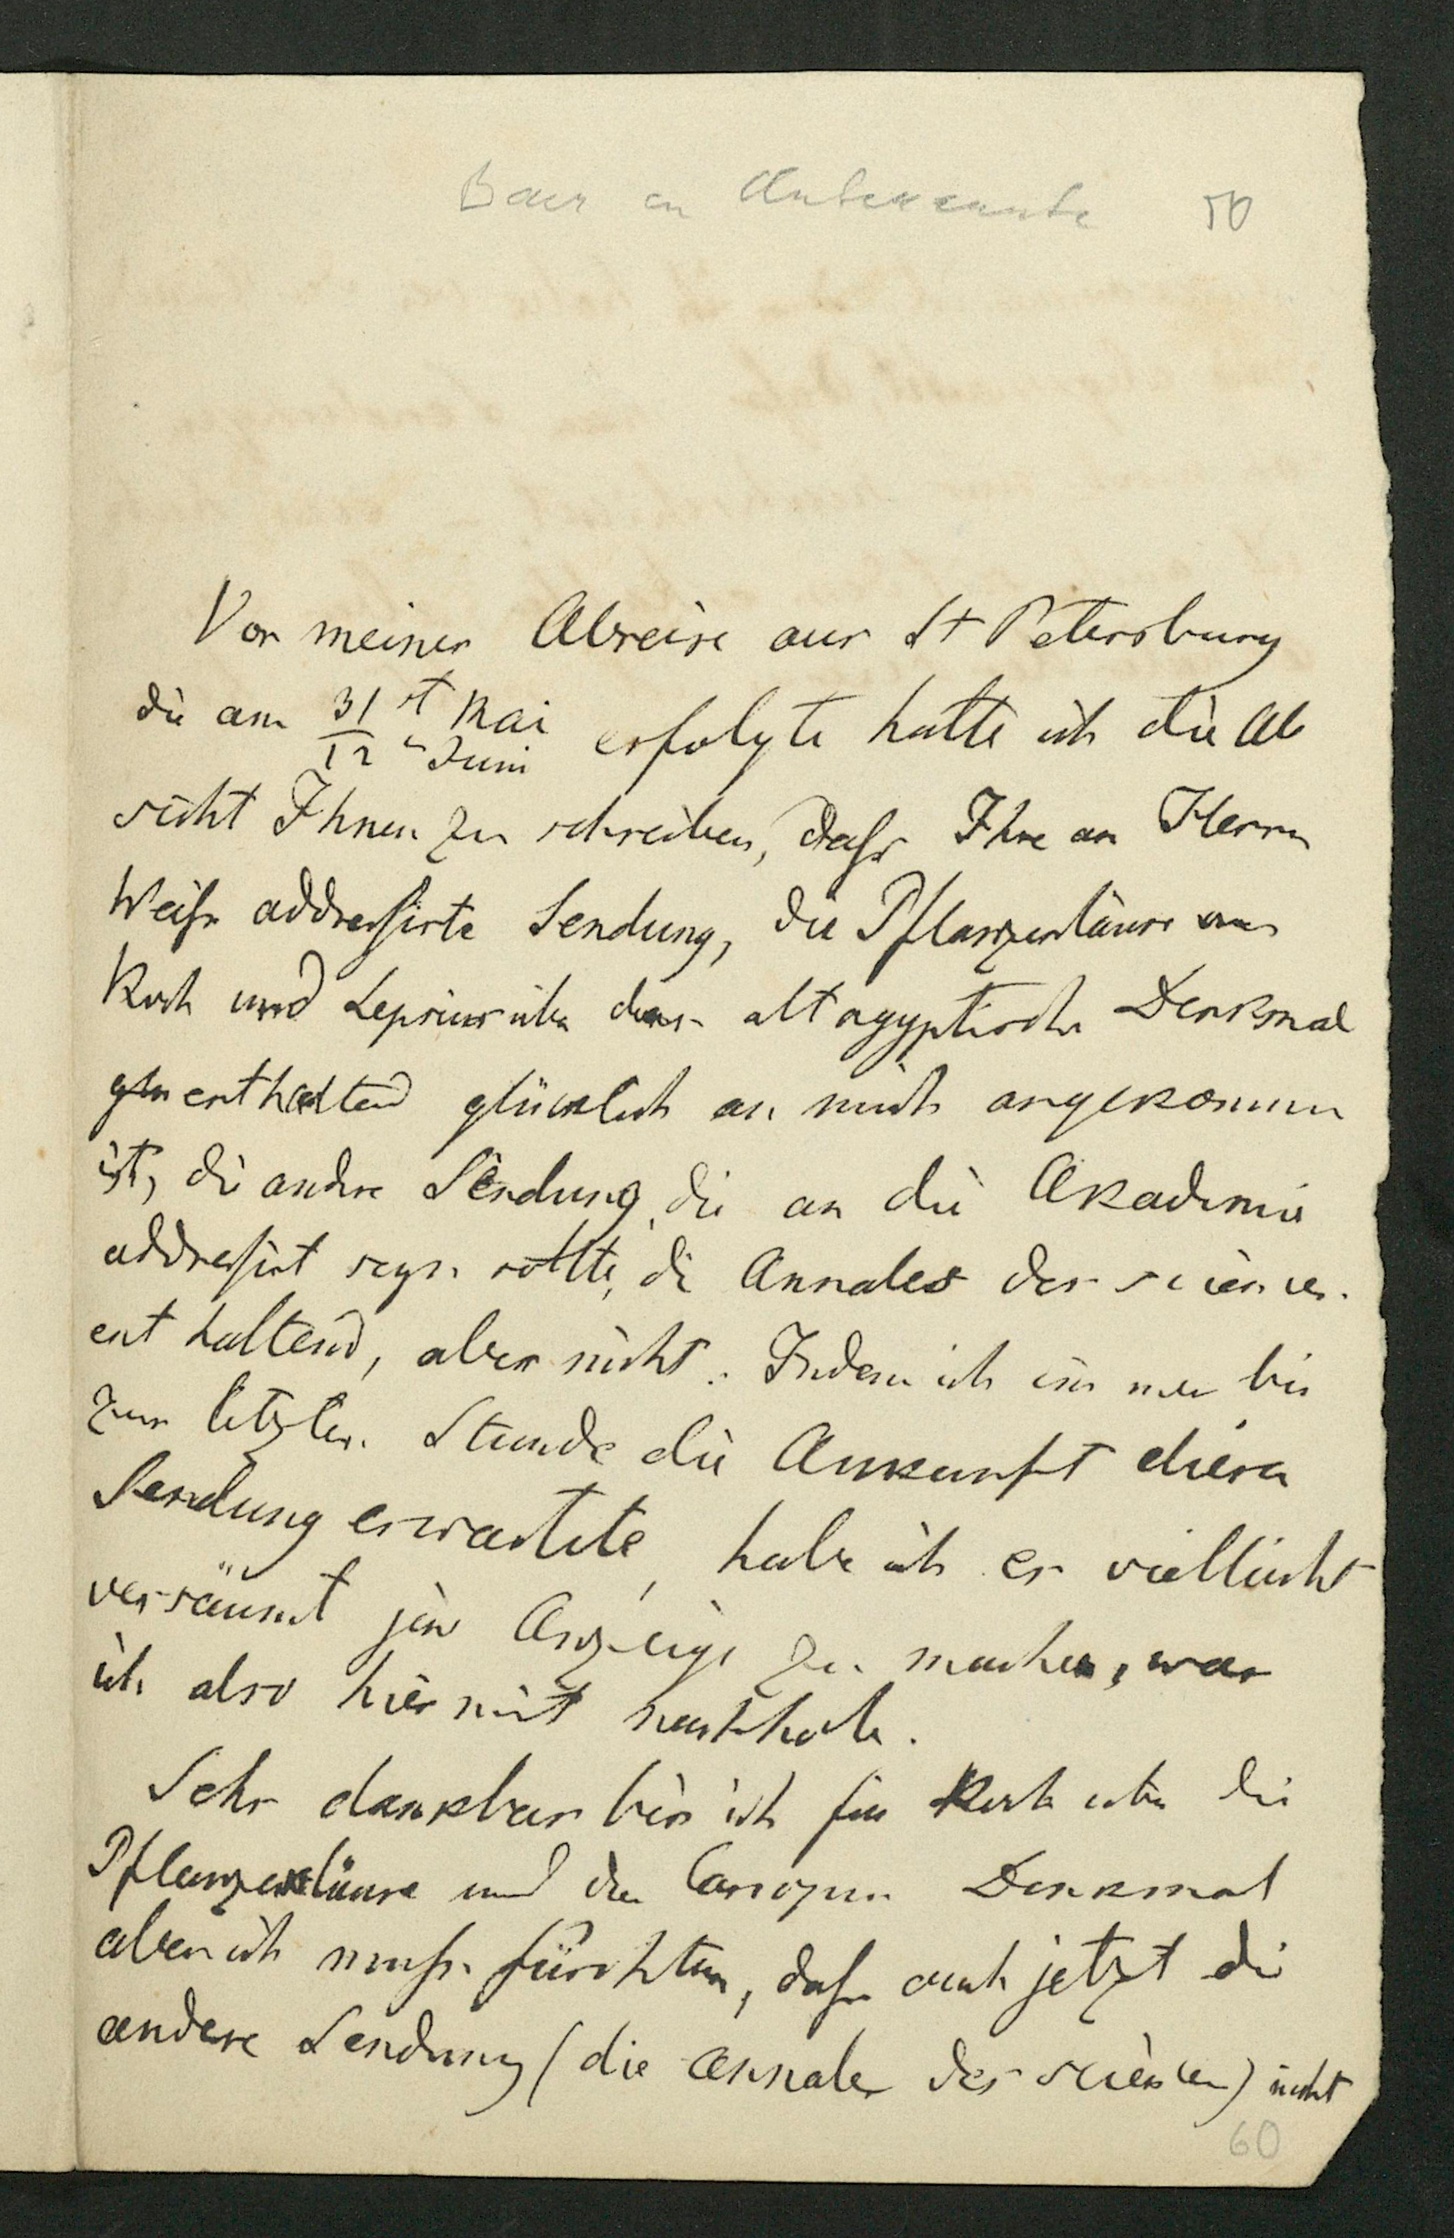 Baer an Unbekannte 50
Vor meiner Abreise aus St Petersburg
die am 31st Mai / 12n Juni erfolgte hatte ich die Ab
sicht Ihnen zu schreiben, dass Ihre an Herrn
Weiss addressirte Sendung, die Pflanzenläuse von
Koch und Lepsius über das altägyptische Denkmal
enthaltend glücklich an mich angekommen
ist, die andre Sendung, die an die Akademie
addressirt seyn sollte, die Annales des sciences
ent haltend, aber nicht. Indem ich immer bis
zur letzten Stunde die Ankunft dieser
Sendung erwartete, habe ich es vielleicht
versäumt jene Anzeige zu machen, was
ich also hiermit nachhole.
Sehr dankbar bin ich für Koch über die
Pflanzenläuse und das Canopus Denkmal
aber ich muss fürchten, dass auch jetzt die
andere Sendung (die Annales des sciences) nicht
60